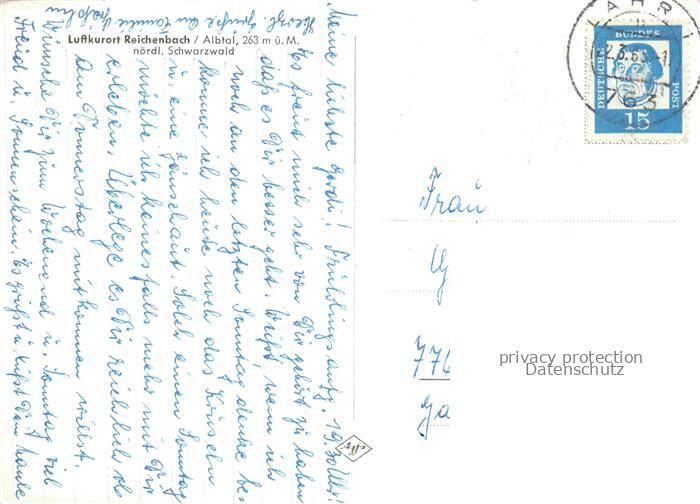 Meine liebste Gerdi! Frühlingsanfg. 19.30 Uhr!
Es freut mich sehr von Dir gehört zu haben
daß es Dir besser geht. Weißt wenn ich
noch an den letzten Sonntag denke be-
komme ich heute noch das Gruseln
u. eine Gänsehaut. Solch einen Sonntag
möchte ich keinesfalls mehr mit Dir
erleben. Überlege es Dir reichlich ob
am Donnerstag mitkommen willst.
Wünsche Dir zum Wochenend u. Sonntag viel
Freud u. Sonnenschein. Es grüßt u. küßt Dich
Herzl. Grüße an Familie
Luftkurort Reichenbach / Albtal, 263 m ü. M.
nördl. Schwarzwald
LAHR
763
DEUTSCHE
BUNDES
POST
15
Frau
G
776
Ga
privacy protection
Datenschutz